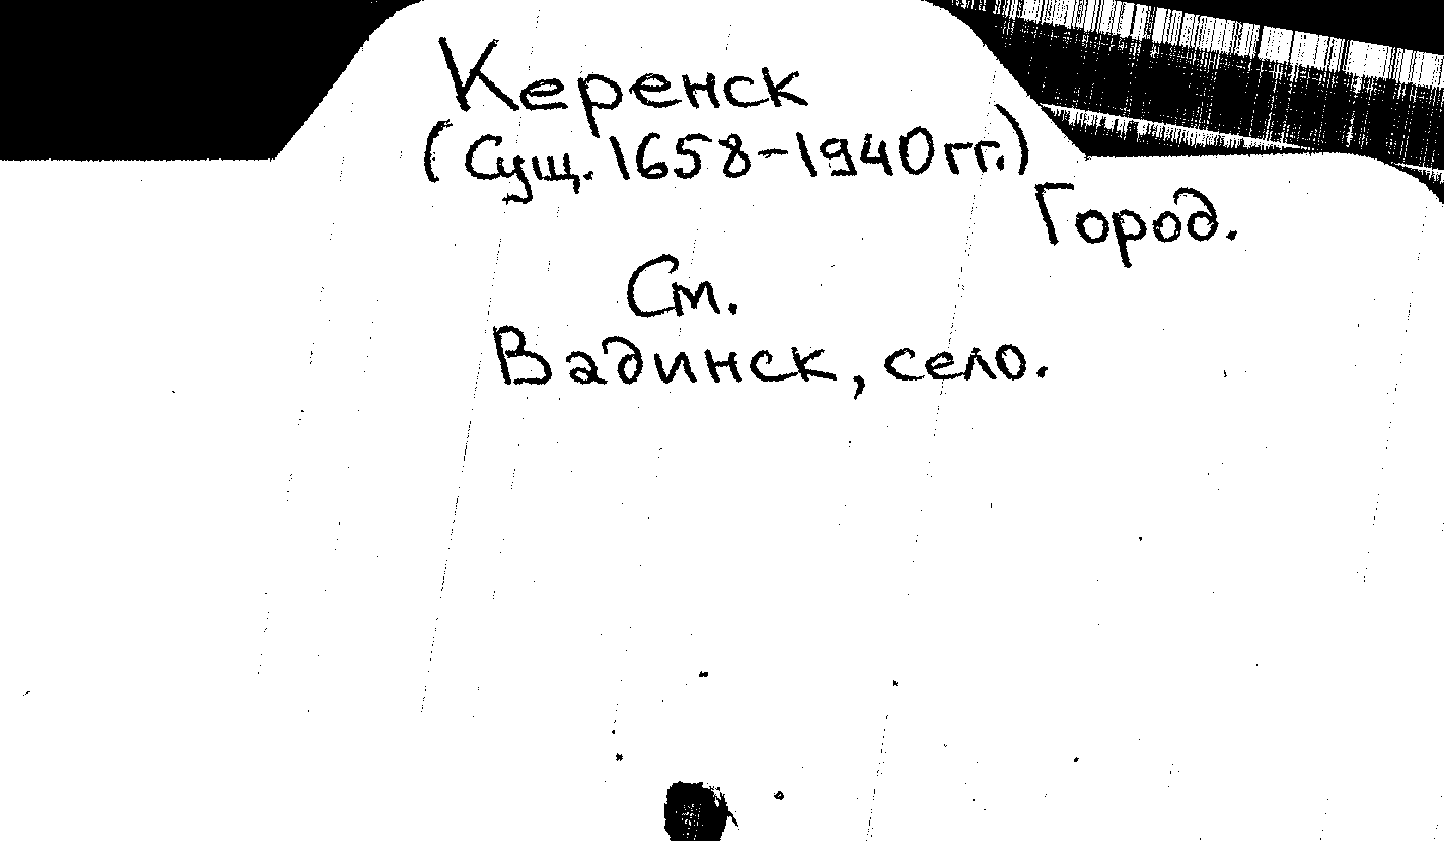 Керенск
(Сущ. 1658-1940 гг.)
Город.
См.
Вадинск, село.